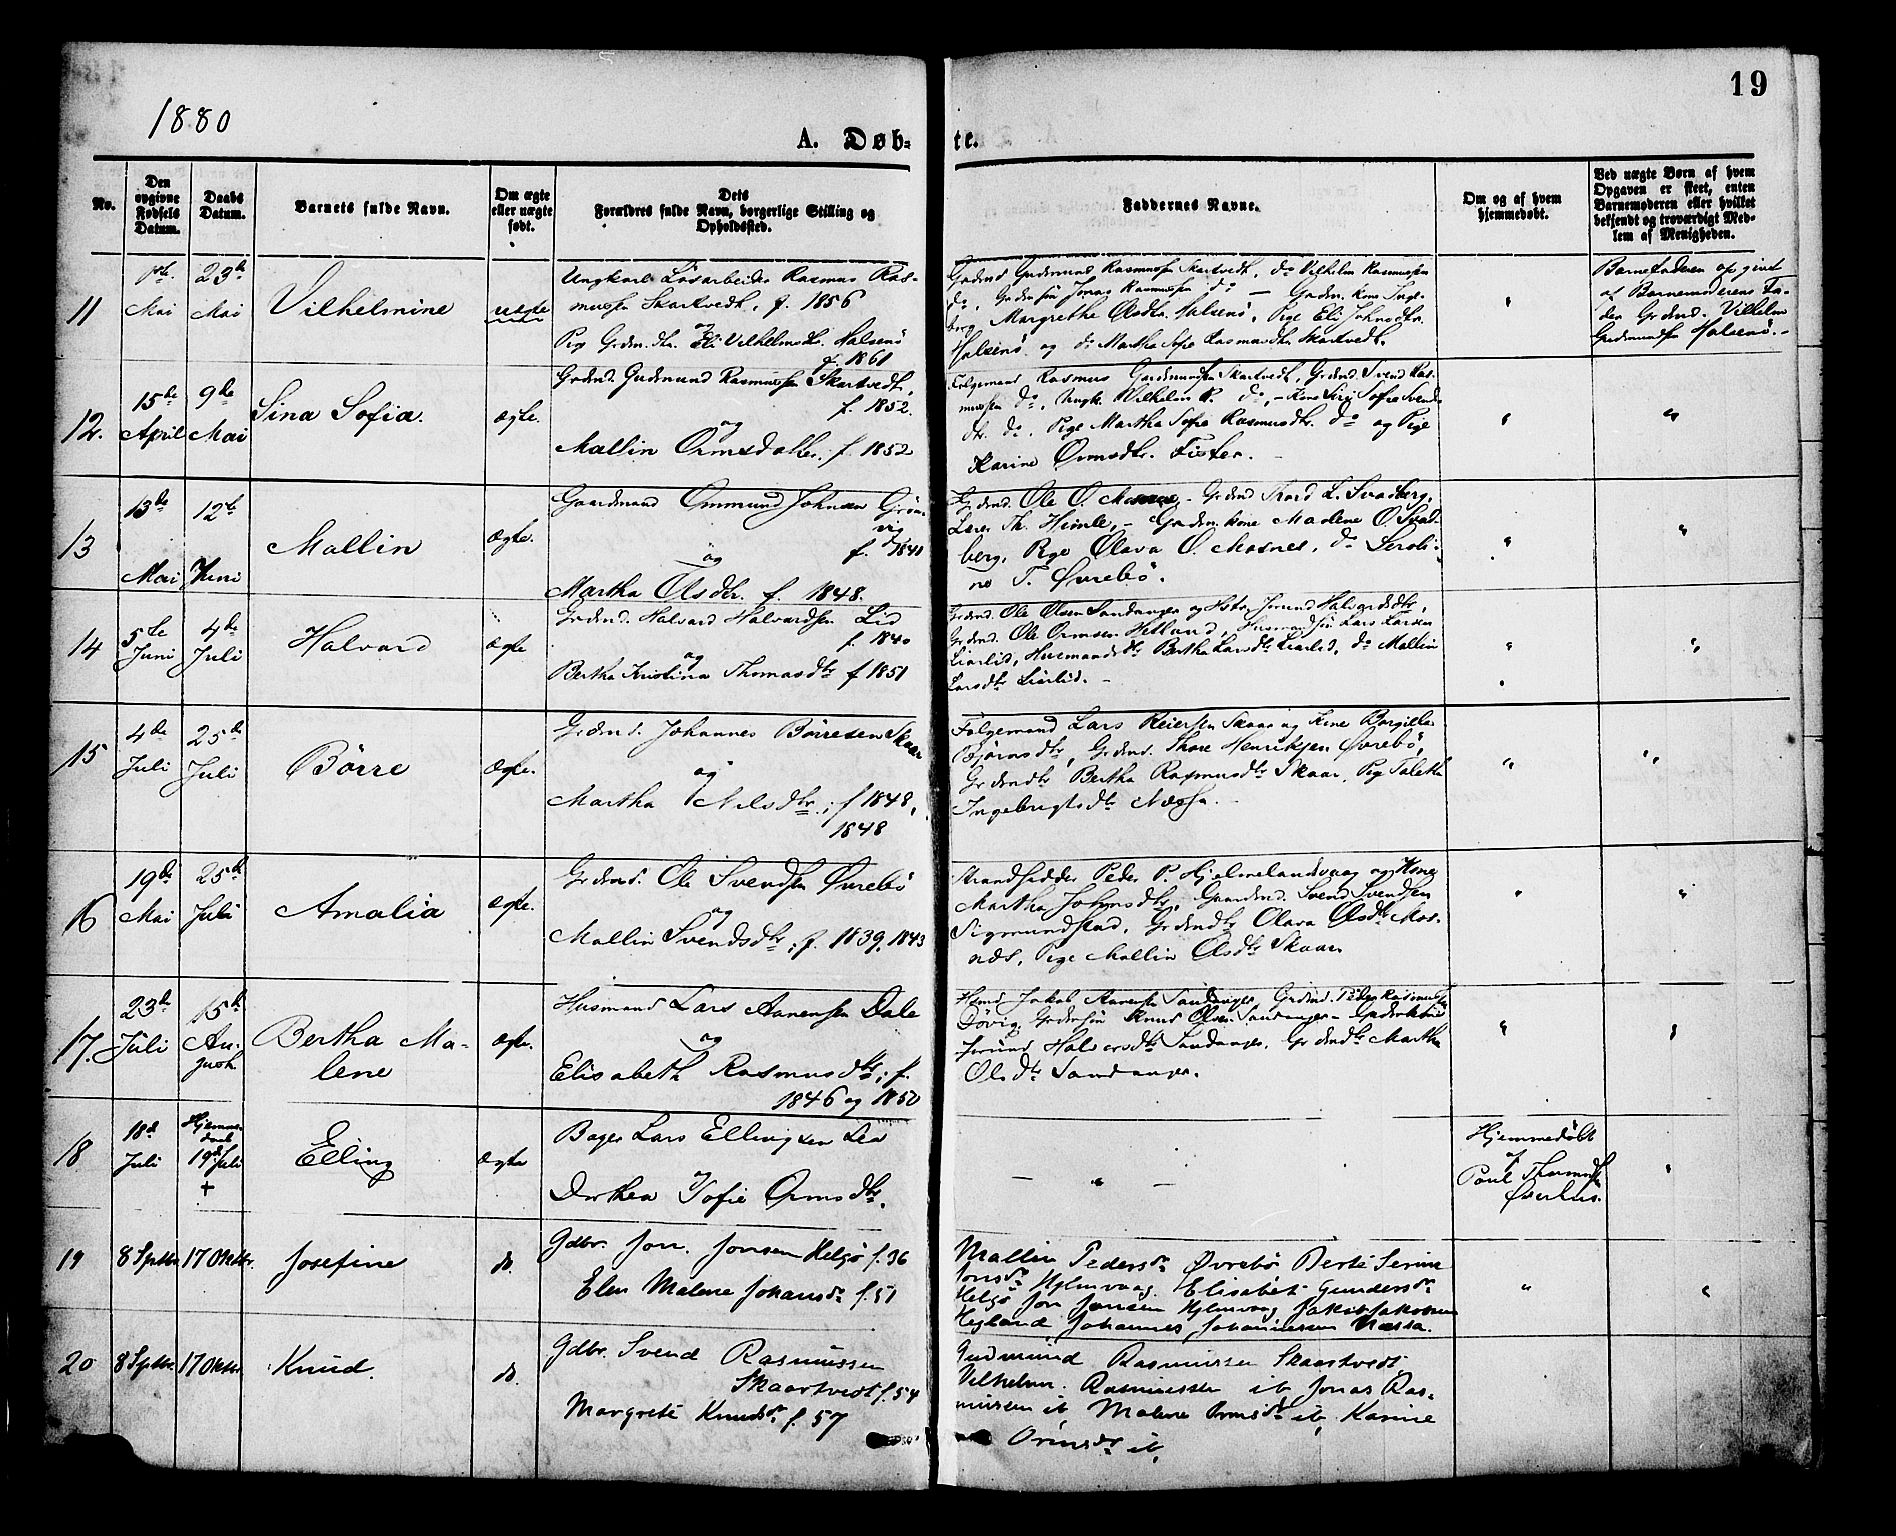 19
1880
A. Døb-
te.
No.
Den opgivne Fødsels Datum.
Daabs Datum.
Barnets fulde Navn.
Om ægte eller uægte født.
Dets Forældres fulde Navn, borgerlige Stilling og Opholdssted.
Faddernes Navne.
Om og af hvem hjemmedøbt.
Ved uægte Børn af hvem Opgaven er skeet, enten Barnemoderen eller hvilket bekjendt og troværdigt Medlem af Menigheden.
11
1ste Mai
23de Mai
Vilhelmine
uægte
Ungkarl Løsarbeider Rasmus Ras-
mussen Skartvedt, f. 1856
og
Pige Grdm. dtr. Eli Vilhelmsdtr. Halsenö
f. 1861
Grdmd Gudmund Rasmussen Skartvedt, do Vilhelm Rasmussen
do, Grdm. søn Jonas Rasmussen do — Grdm. kone Inge-
borg Margrethe Olsdtr. Halsenö, Pige Eli Johnsdtr.
Halsenö og do Martha Sofie Rasmusdtr. Skartvedt.
"
Barnefaderen opgivet
af Barnemoderens Fa-
der Grdmd. Vilhelm
Gudmundsen Halsenö.-
12.
15de April
9de Mai
Sina Sofia.
ægte.
Grdmd. Gudmund Rasmussen Skartvedt,
f. 1852.
og
Mallin Ormsdatter; f. 1852
Følgemand Rasmus Gudmundsen Skartvedt, Grdmd. Svend Ras-
mussen do, Ungk. Vilhelm R. do, – Kone Siri Sofie Svends-
dtr. do, Pige Martha Sofie Rasmusdtr. do og Pige
Karine Ormsdtr. Fister. -
"
"
13
13de Mai
12te Juni
Mallin
ægte.
Gaardmand Ommund Johnsen Grön-
vig
f. 1841
og
Martha Olsdtr. f. 1848.
Grdmd. Ole O. Mosnes, - Grdmd Thord L. Svadberg,
Lærer Th. Himle, – Grdm. kone Marlene O. Svad-
berg, Pige Olava O. Mosnes, do Seroli-
ne T. Øvrebö.
"
"
14
5te Juni
4de Juli
Halvard
ægte
Grdmd. Halvard Halvardsen Lid
f. 1840
og
Bertha Kristina Thomasdtr f 1851
Grdmd. Ole Olsen Sandanger og Hstr. Jorund Halvardsdtr,
Grdmd. Ole Ormsen Hetland, Husmandssøn Lars Larsen
Liarlid, Husmandsdtr Bertha Larsdtr Liarlid, do Mallin
Larsdtr Liarlid. –
"
"
15
4de Juli
25de Juli
Börre
ægte.
Grdmd. Johannes Börresen Skaar
og
Martha Nilsdtr.; f 1848,
1848
Følgemand Lars Reiersen Skaar og Kone Borgilla
Bjørnsdtr, Grdmd. Thore Henriksen Øvrebö,
Grdmdtr Bertha Rasmusdtr Skaar, Pige Taletha
Ingebrigtsdtr Næssa. –
"
"
16
19de Mai
25de Juli
Amalia
ægte.
Grdmd. Ole Svendsen Øvrebö
og
Mallin Svendsdtr; f. 1839, 1843
Strandsidder Peder P. Hjelmelandsvaag og Kone
Martha Johnsdtr, Gaardmd. Svend Svendsen
Sigmundstad, Grdmdtr Olava Olsdtr Mos-
næs, Pige Mallin Olsdtr Skaar.
"
"
17.
23de Juli
15de August.
Bertha Ma-
lene
ægte.
Husmand Lars Aanensen Dale
og
Elisabeth Rasmusdtr; f.
1846 og 1850
Hsmd Jakob Aanensen Sandanger, Grdmd. Peder Rasmussen
Døvig, Grdmsøn Knud Olsen Sandanger – Grdmkone
Jorund Halvorsdtr Sandanger, Grdmdtr Martha
Olsdtr Sandanger.
"
"
18
18de Juli
Hjemme-
døbt
19de Juli
†
Elling
ægte
Bager Lars Ellingsen Lea
og
Dorthea Sofie Ormsdtr.
— " —
Hjemmedöbt
af
Poul Thomassen
Øverhus.
"
19
8 Septbr.
17 Oktbr.
Josefine
do.
Gdbr. Jon. Jonsen Helgö f. 36
Elen Malene Johansdr f. 51
Mallin Pedersdr Øvrebö Berte Serine
Jonsdr Hylmvaag. Elisabet Gundersdr
Helgö Jon Jonsen Hylmvaag Jakob Jakobsen
Hegland Johannes Johannesen Næssa.
"
"
20
8 Septbr.
17 Oktbr.
Knud.
do.
Gdbr. Svend Rasmussen
Skaartvedt f. 54
Margrete Knudsdr f. 57
Gudmund Rasmussen Skaartvedt
Vilhelm. Rasmussen ib Jonas Ras-
mussen ib, Malene Ormsdr ib, Karine
Ormsdr ib,